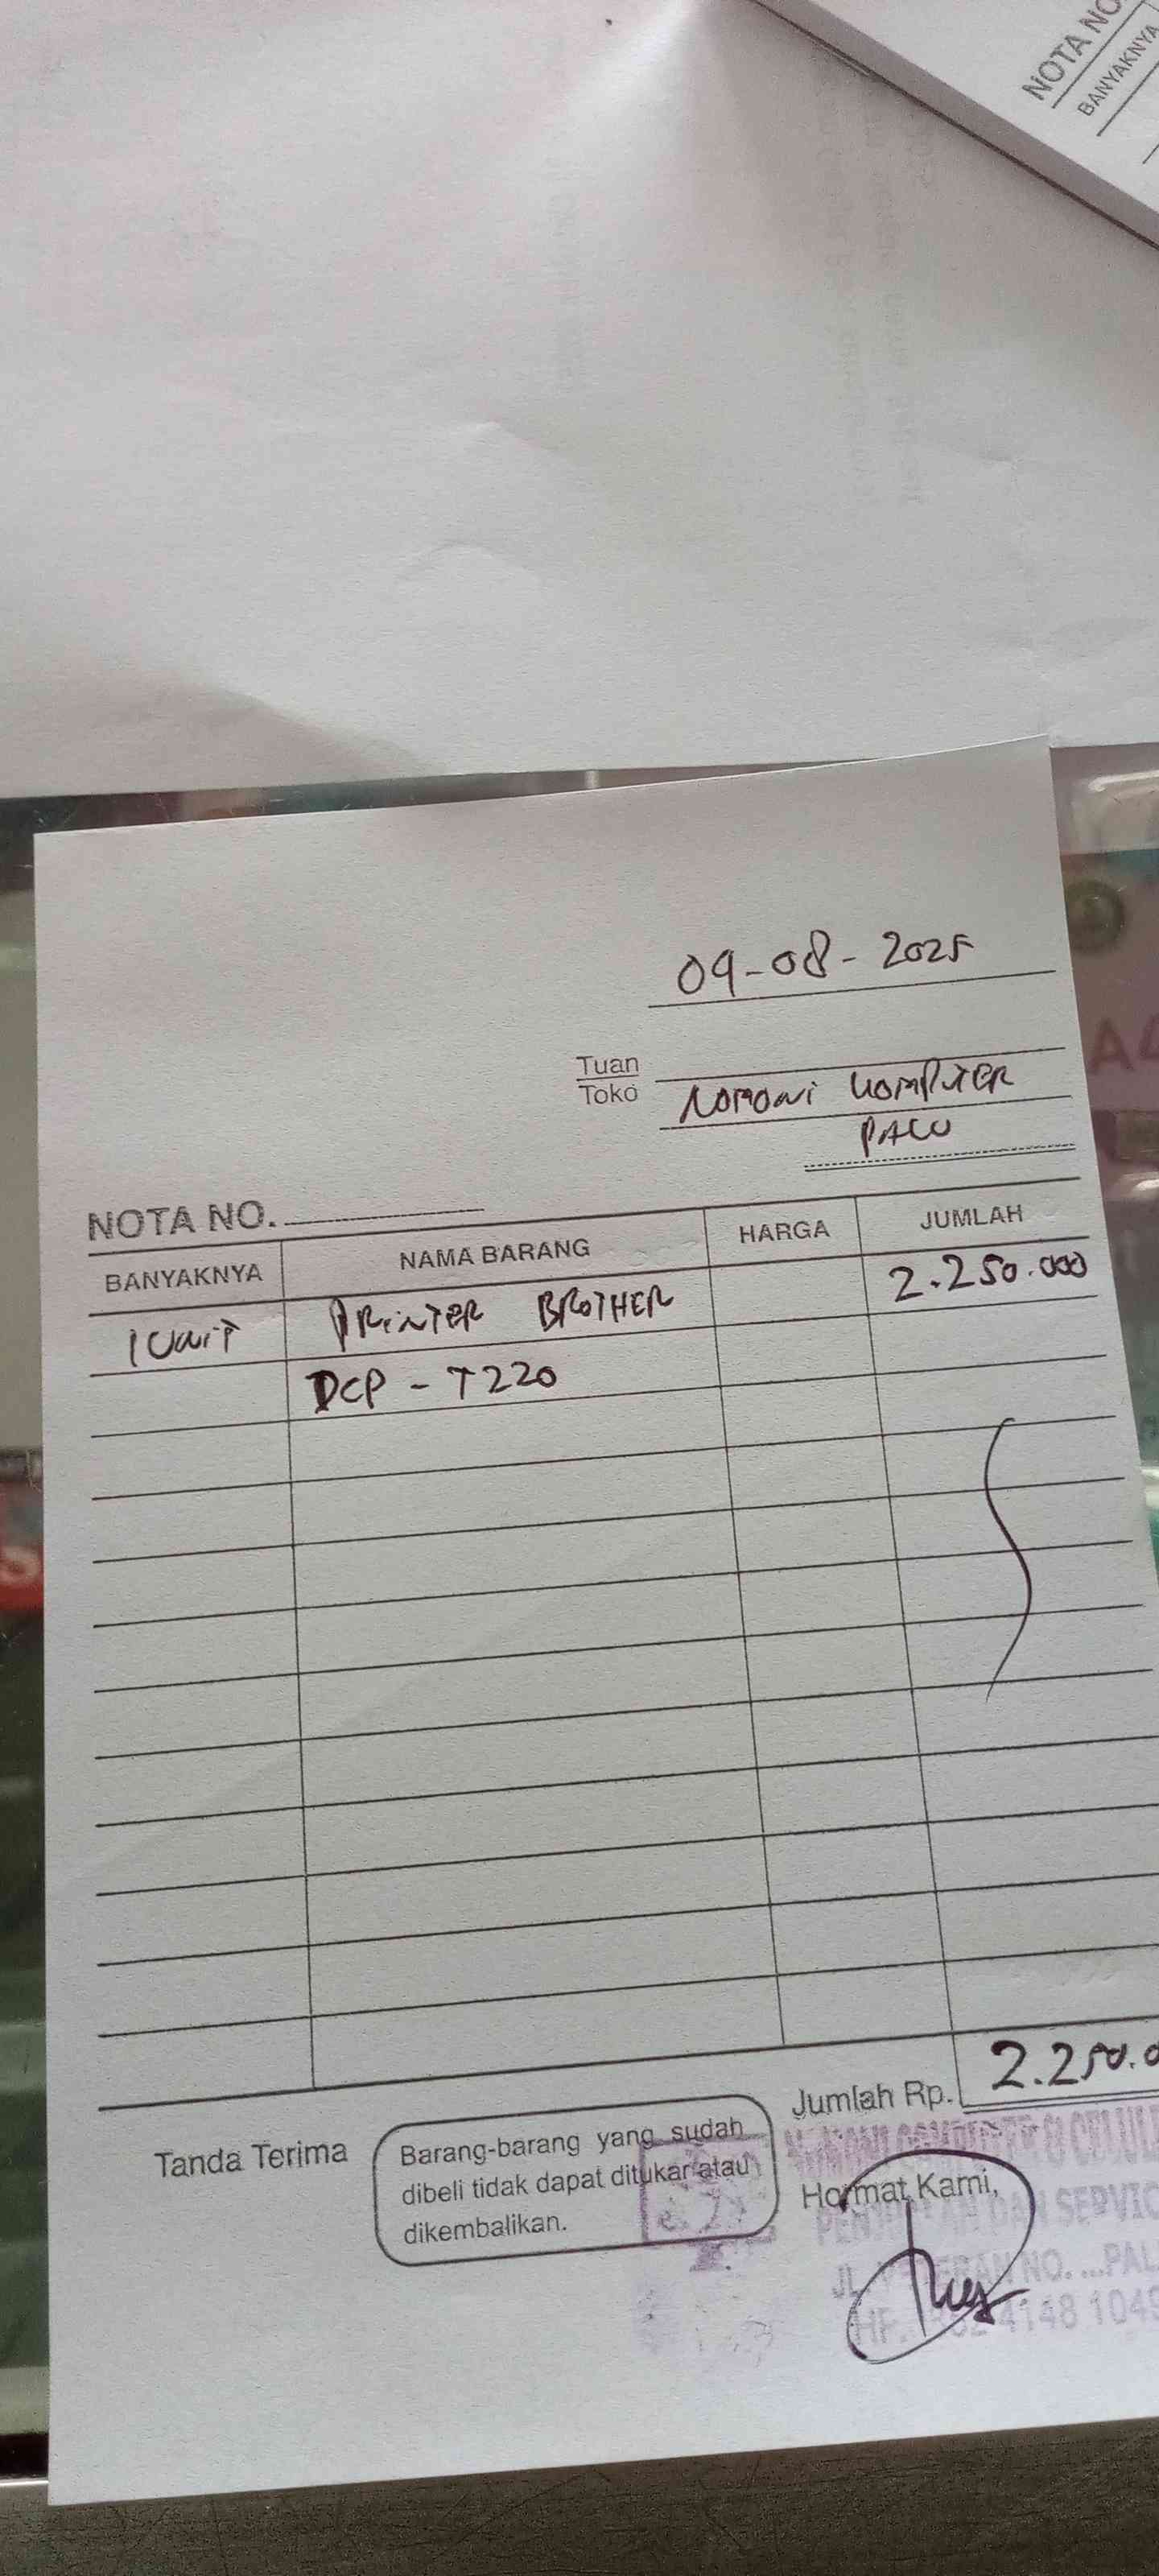 NOTA NO.
BANYAKNYA
09-08-2025
Tuan
Toko NOMONI KOMPUTER
PALU
NOTA NO.
BANYAKNYA NAMA BARANG HARGA JUMLAH
1 UNIT PRINTER BROTHER 2.250.000
DCP - T220
Jumlah Rp. 2.250.0
Tanda Terima
Barang-barang yang sudah
dibeli tidak dapat ditukar atau
dikembalikan.
Hormat Kami,
DAN SERVIC
NO. ...PAL
4148 1049